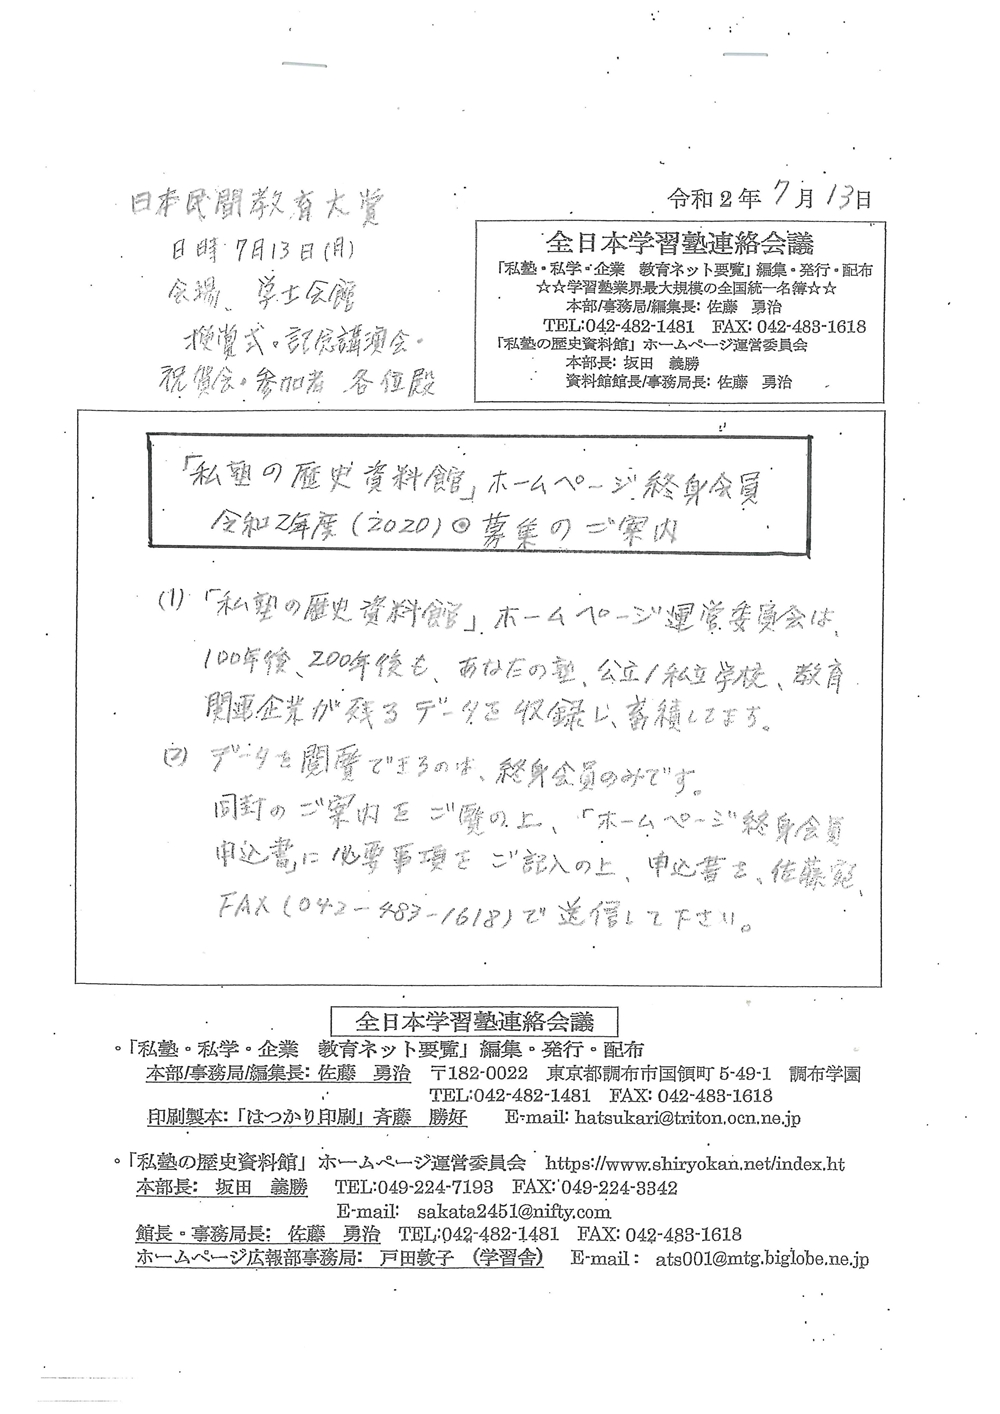 令和2年7月13日
日本民間教育大賞
日時 7月13日(月)
会場、学士会館
授賞式。記念講演会。
祝賀会。参加者 各位殿
全日本学習塾連絡会議
「私塾・私学・企業 教育ネット要覧」編集・発行・配布
☆☆学習塾業界最大規模の全国統一名簿☆☆
本部/事務局/編集長: 佐藤 勇治
TEL:042-482-1481 FAX: 042-483-1618
「私塾の歴史資料館」ホームページ運営委員会
本部長: 坂田 義勝
資料館館長/事務局長: 佐藤 勇治
「私塾の歴史資料館」ホームページ終身会員
令和2年度(2020)◎募集のご案内
(1) 「私塾の歴史資料館」ホームページ運営委員会は、
100年後、200年後も、あなたの塾、公立/私立学校、教育
関連企業が残るデータを収録し、蓄積してます。
(2) データを閲覧できるのは、終身会員のみです。
同封のご案内をご覧の上、「ホームページ終身会員
申込書」に必要事項をご記入の上、申込書を、佐藤宛、
FAX(042-483-1618)で送信して下さい。
全日本学習塾連絡会議
。「私塾・私学・企業 教育ネット要覧」編集・発行・配布
本部/事務局/編集長: 佐藤 勇治 〒182-0022 東京都調布市国領町5-49-1 調布学園
TEL:042-482-1481 FAX: 042-483-1618
印刷製本:「はつかり印刷」斉藤 勝好 E-mail: hatsukari@triton.ocn.ne.jp
。「私塾の歴史資料館」ホームページ運営委員会 https://www.shiryokan.net/index.ht
本部長: 坂田 義勝 TEL:049-224-7193 FAX:049-224-3342
E-mail: sakata2451@nifty.com
館長・事務局長: 佐藤 勇治 TEL:042-482-1481 FAX: 042-483-1618
ホームページ広報部事務局: 戸田敦子 (学習舎) E-mail: ats001@mtg.biglobe.ne.jp